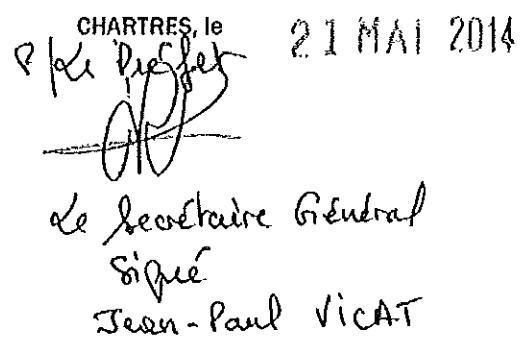 CHARTRES, le 21 MAI 2014
P/Le Préfet
Le Secrétaire Général
Signé
Jean-Paul VICAT